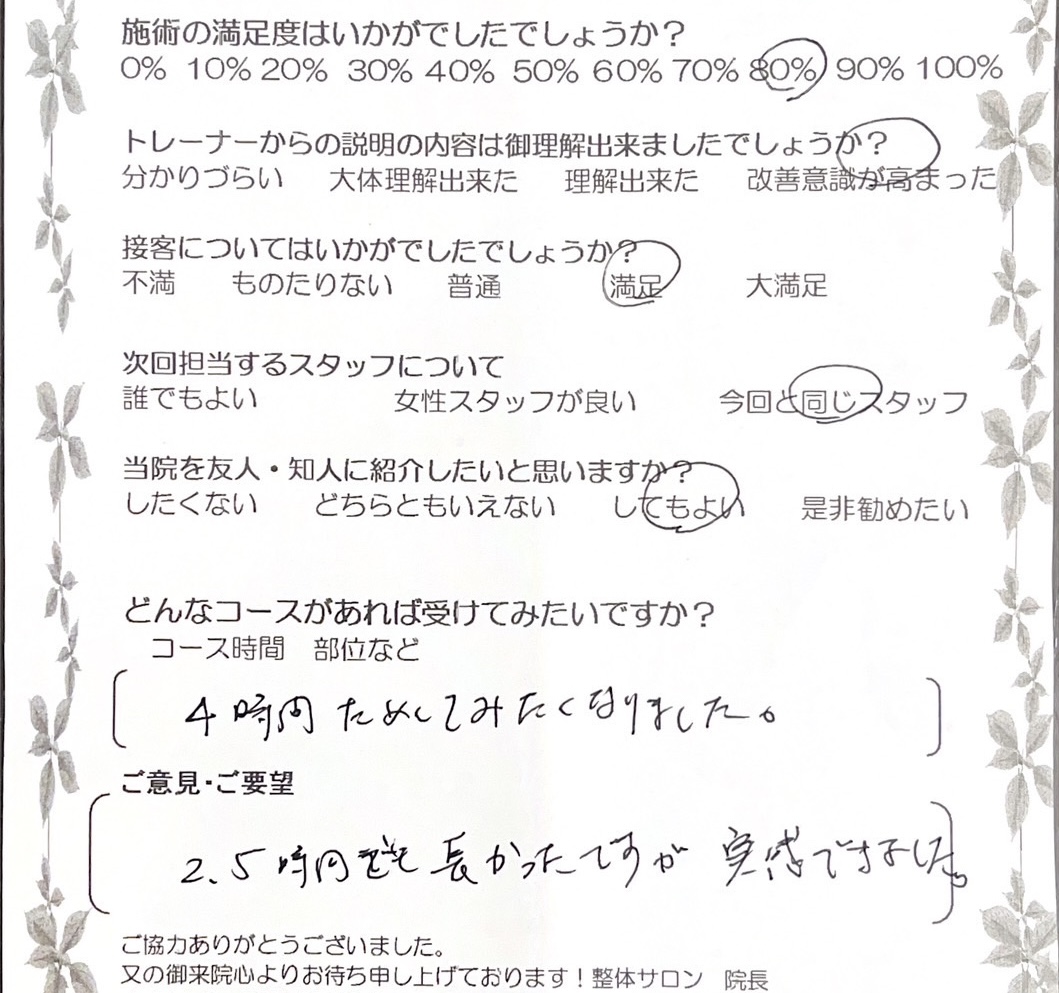 施術の満足度はいかがでしたでしょうか?
0% 10% 20% 30% 40% 50% 60% 70% 80% 90% 100%
トレーナーからの説明の内容は御理解出来ましたでしょうか?
分かりづらい 大体理解出来た 理解出来た 改善意識が高まった
接客についてはいかがでしたでしょうか?
不満 ものたりない 普通 満足 大満足
次回担当するスタッフについて
誰でもよい 女性スタッフが良い 今回と同じスタッフ
当院を友人・知人に紹介したいと思いますか?
したくない どちらともいえない してもよい 是非勧めたい
どんなコースがあれば受けてみたいですか?
コース時間 部位など
4時間ためしてみたくなりました。
ご意見・ご要望
2.5時間 長かったですが 実感できました。
ご協力ありがとうございました。
又の御来院心よりお待ち申し上げております!整体サロン 院長